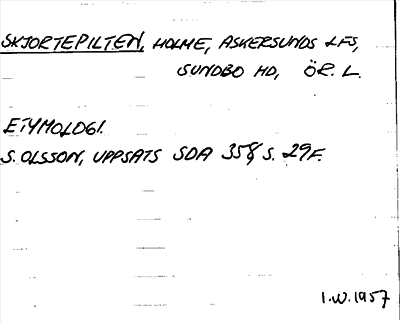 SKJORTEPILTEN, HOLME, ASKERSUNDS LFS,
SUNDBO HD, ÖR. L.
ETYMOLOGI.
S. OLSSON, UPPSATS SDA 358 S. 29 F.
I.W. 1957